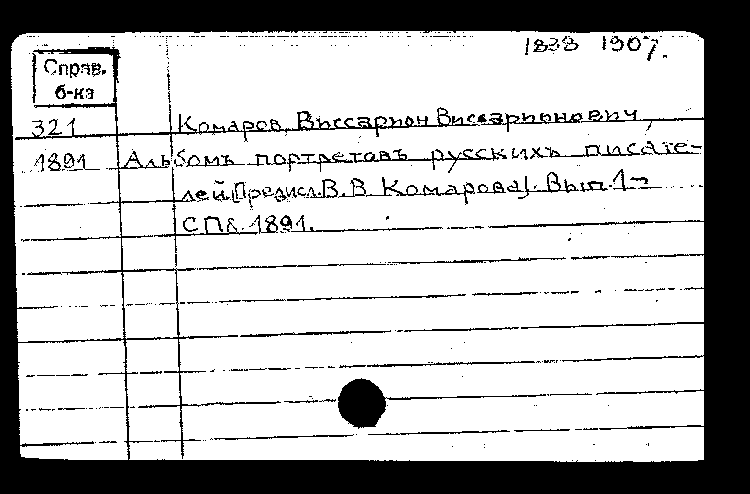 1838 1907.
Справ.
б-ка
321 Комаров, Виссарион Виссарионович,
1891 Альбомъ портретовъ русскихъ писате-
лей [Предисл. В. В. Комарова]. Вып. 1-
СПб. 1891.